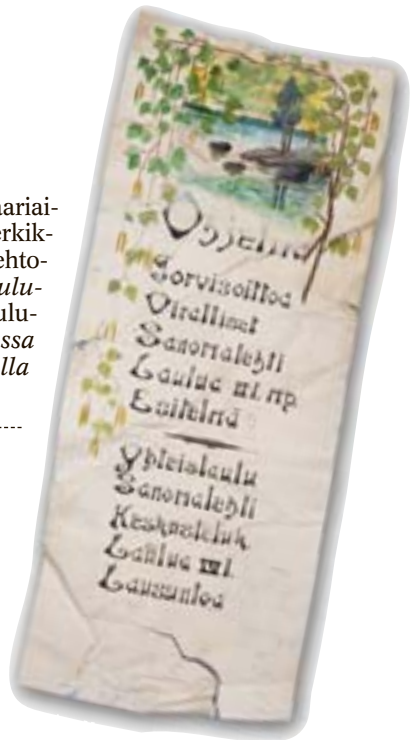 aariai-
erkik-
ehto-
ulu-
ulu-
ssa
lla
Ohjelma
Torvisoittoa
Viralliset
Sanomalehti
Laulua
Esitelmä
Yhteislaulu
Sanomalehti
Keskusteluk.
Laulua
Lausuntoa